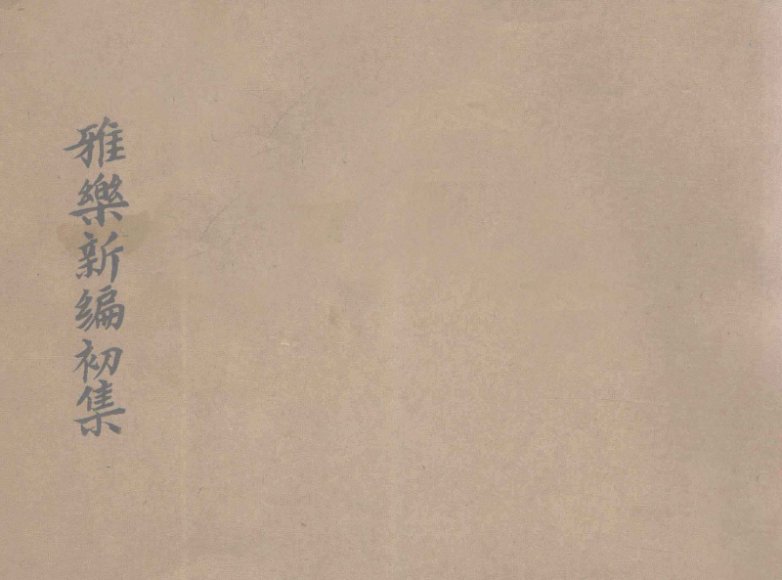 雅樂新编初集